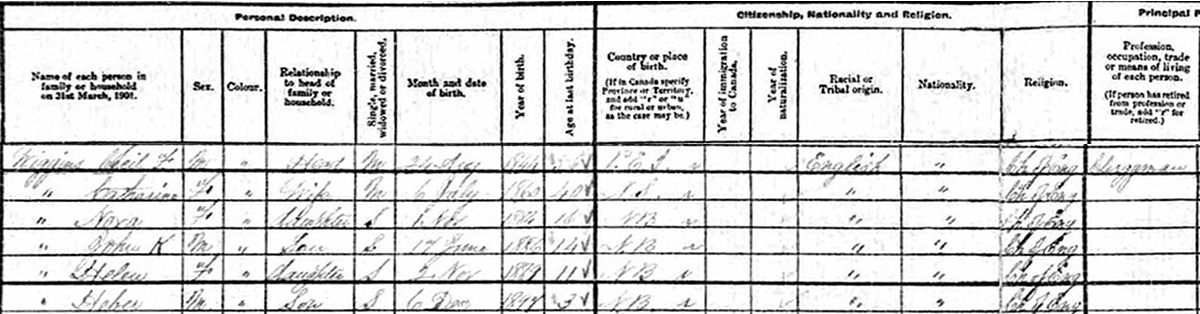 Personal Description. Citizenship, Nationality and Religion. Principal
Name of each person in family or household on 31st March, 1901. Sex. Colour. Relationship to head of family or household. Single, married, widowed or divorced. Month and date of birth. Year of birth. Age at last birthday. Country or place of birth. (If in Canada specify Province or Territory, and add "r" or "u" for rural or urban, as the case may be.) Year of immigration to Canada. Year of naturalization. Racial or Tribal origin. Nationality. Religion. Profession, occupation, trade or means of living of each person. (If person has retired from profession or trade, add "r" for retired.)
Wiggins Cecil F M " Head M 24 Aug P.E.I. English " Ch of Eng Clergyman
" Catharine F " Wife M 6 July 1860 40 N.S. " " Ch of Eng
" Nora F " daughter S 1 Nov 1884 16 NB " " Ch of Eng
" K M " Son S 17 June 1886 14 NB " " Ch of Eng
" Helen F " daughter S 2 Nov 1889 11 NB " " Ch of Eng
" Heber M " Son S 6 Dec 1897 3 NB " " Ch of Eng